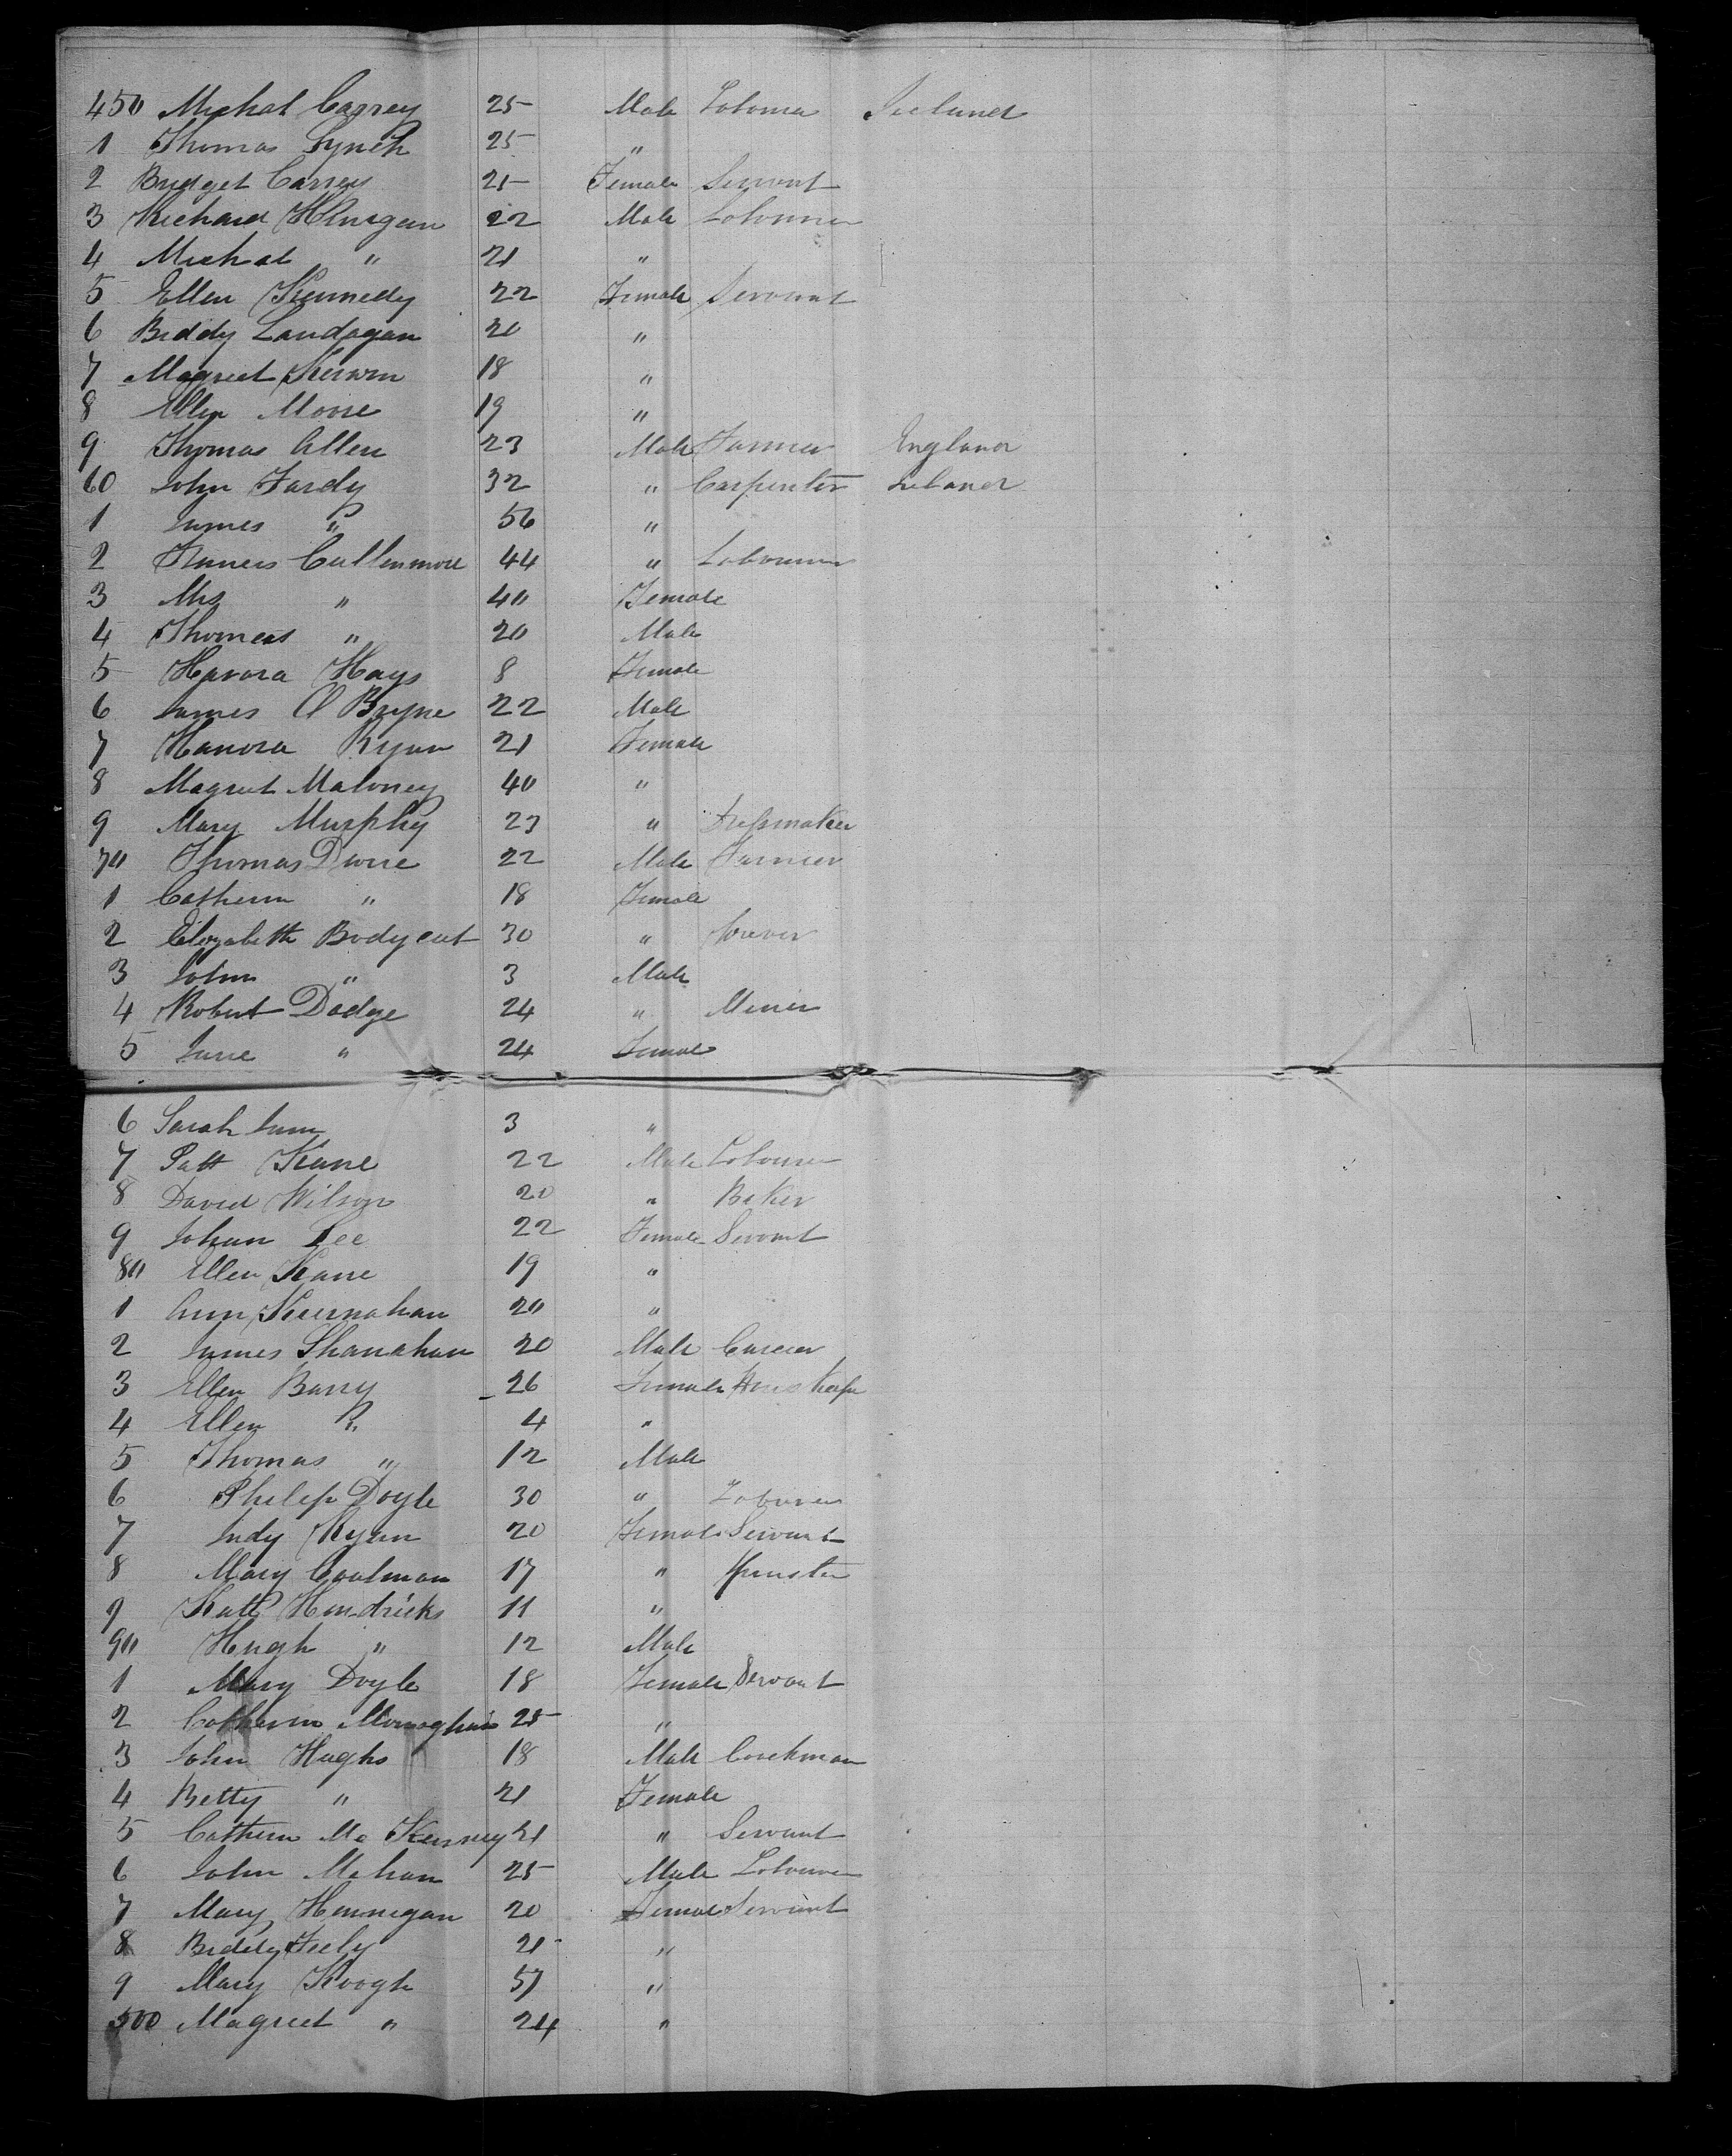 450 Michal Carrey 25 Male Labourer Ireland
1 Thomas Lynch 25 "
2 Bridget Carrey 21 Female Servant
3 Richard 22 Male Labourer
4 Michal " 21 "
5 Ellen Kennedy 22 Female Servant
6 Biddy Landagan 20 "
7 Magreet Kerwin 18 "
8 Ellen Moore 19 "
9 Thomas Allen 23 Male Farmer England
60 John Fardy 32 " Carpenter Ireland
1 James " 56 "
2 Cullenmore 44 " Labourer
3 Mrs " 40 Female
4 Thomas " 20 Male
5 Hanora Hays 8 Female
6 James O Bryne 22 Male
7 Hanora Ryan 21 Female
8 Magreet Maloney 40 "
9 Mary Murphy 23 " Dressmaker
70 Thomas 22 Male Farmer
1 Cathern " 18 Female
2 Elizabeth Bodycut 30 "
3 John " 3 Male
4 Robert Dodge 24 " Miner
5 Jane " 24 Female
6 Sarah Jane 3 "
7 Patt Kane 22 Male Labourer
8 David Wilson 20 " Baker
9 Johan Lee 22 Female Servant
80 Ellen Kane 19 "
1 Ann Kiernahan 20 "
2 James Shanahan 20 Male
3 Ellen Barry 26 Female
4 Ellen " 4 "
5 Thomas " 12 Male
6 Philip Doyle 30 " Labourer
7 Judy Ryan 20 Female Servant
8 Mary Coalman 17 "
9 Kate Hendricks 11 "
90 Hugh " 12 Male
1 Mary Doyle 18 Female Servant
2 Cathern 25 "
3 John Hughs 18 Male Coachman
4 Betty " 21 Female
5 Cathern Mc Kenney 21 " Servant
6 John Mahan 25 Male Labourer
7 Mary Hennegan 20 Female Servant
8 Biddy Feely 21 "
9 Mary Keogh 57 "
500 Magreet " 24 "